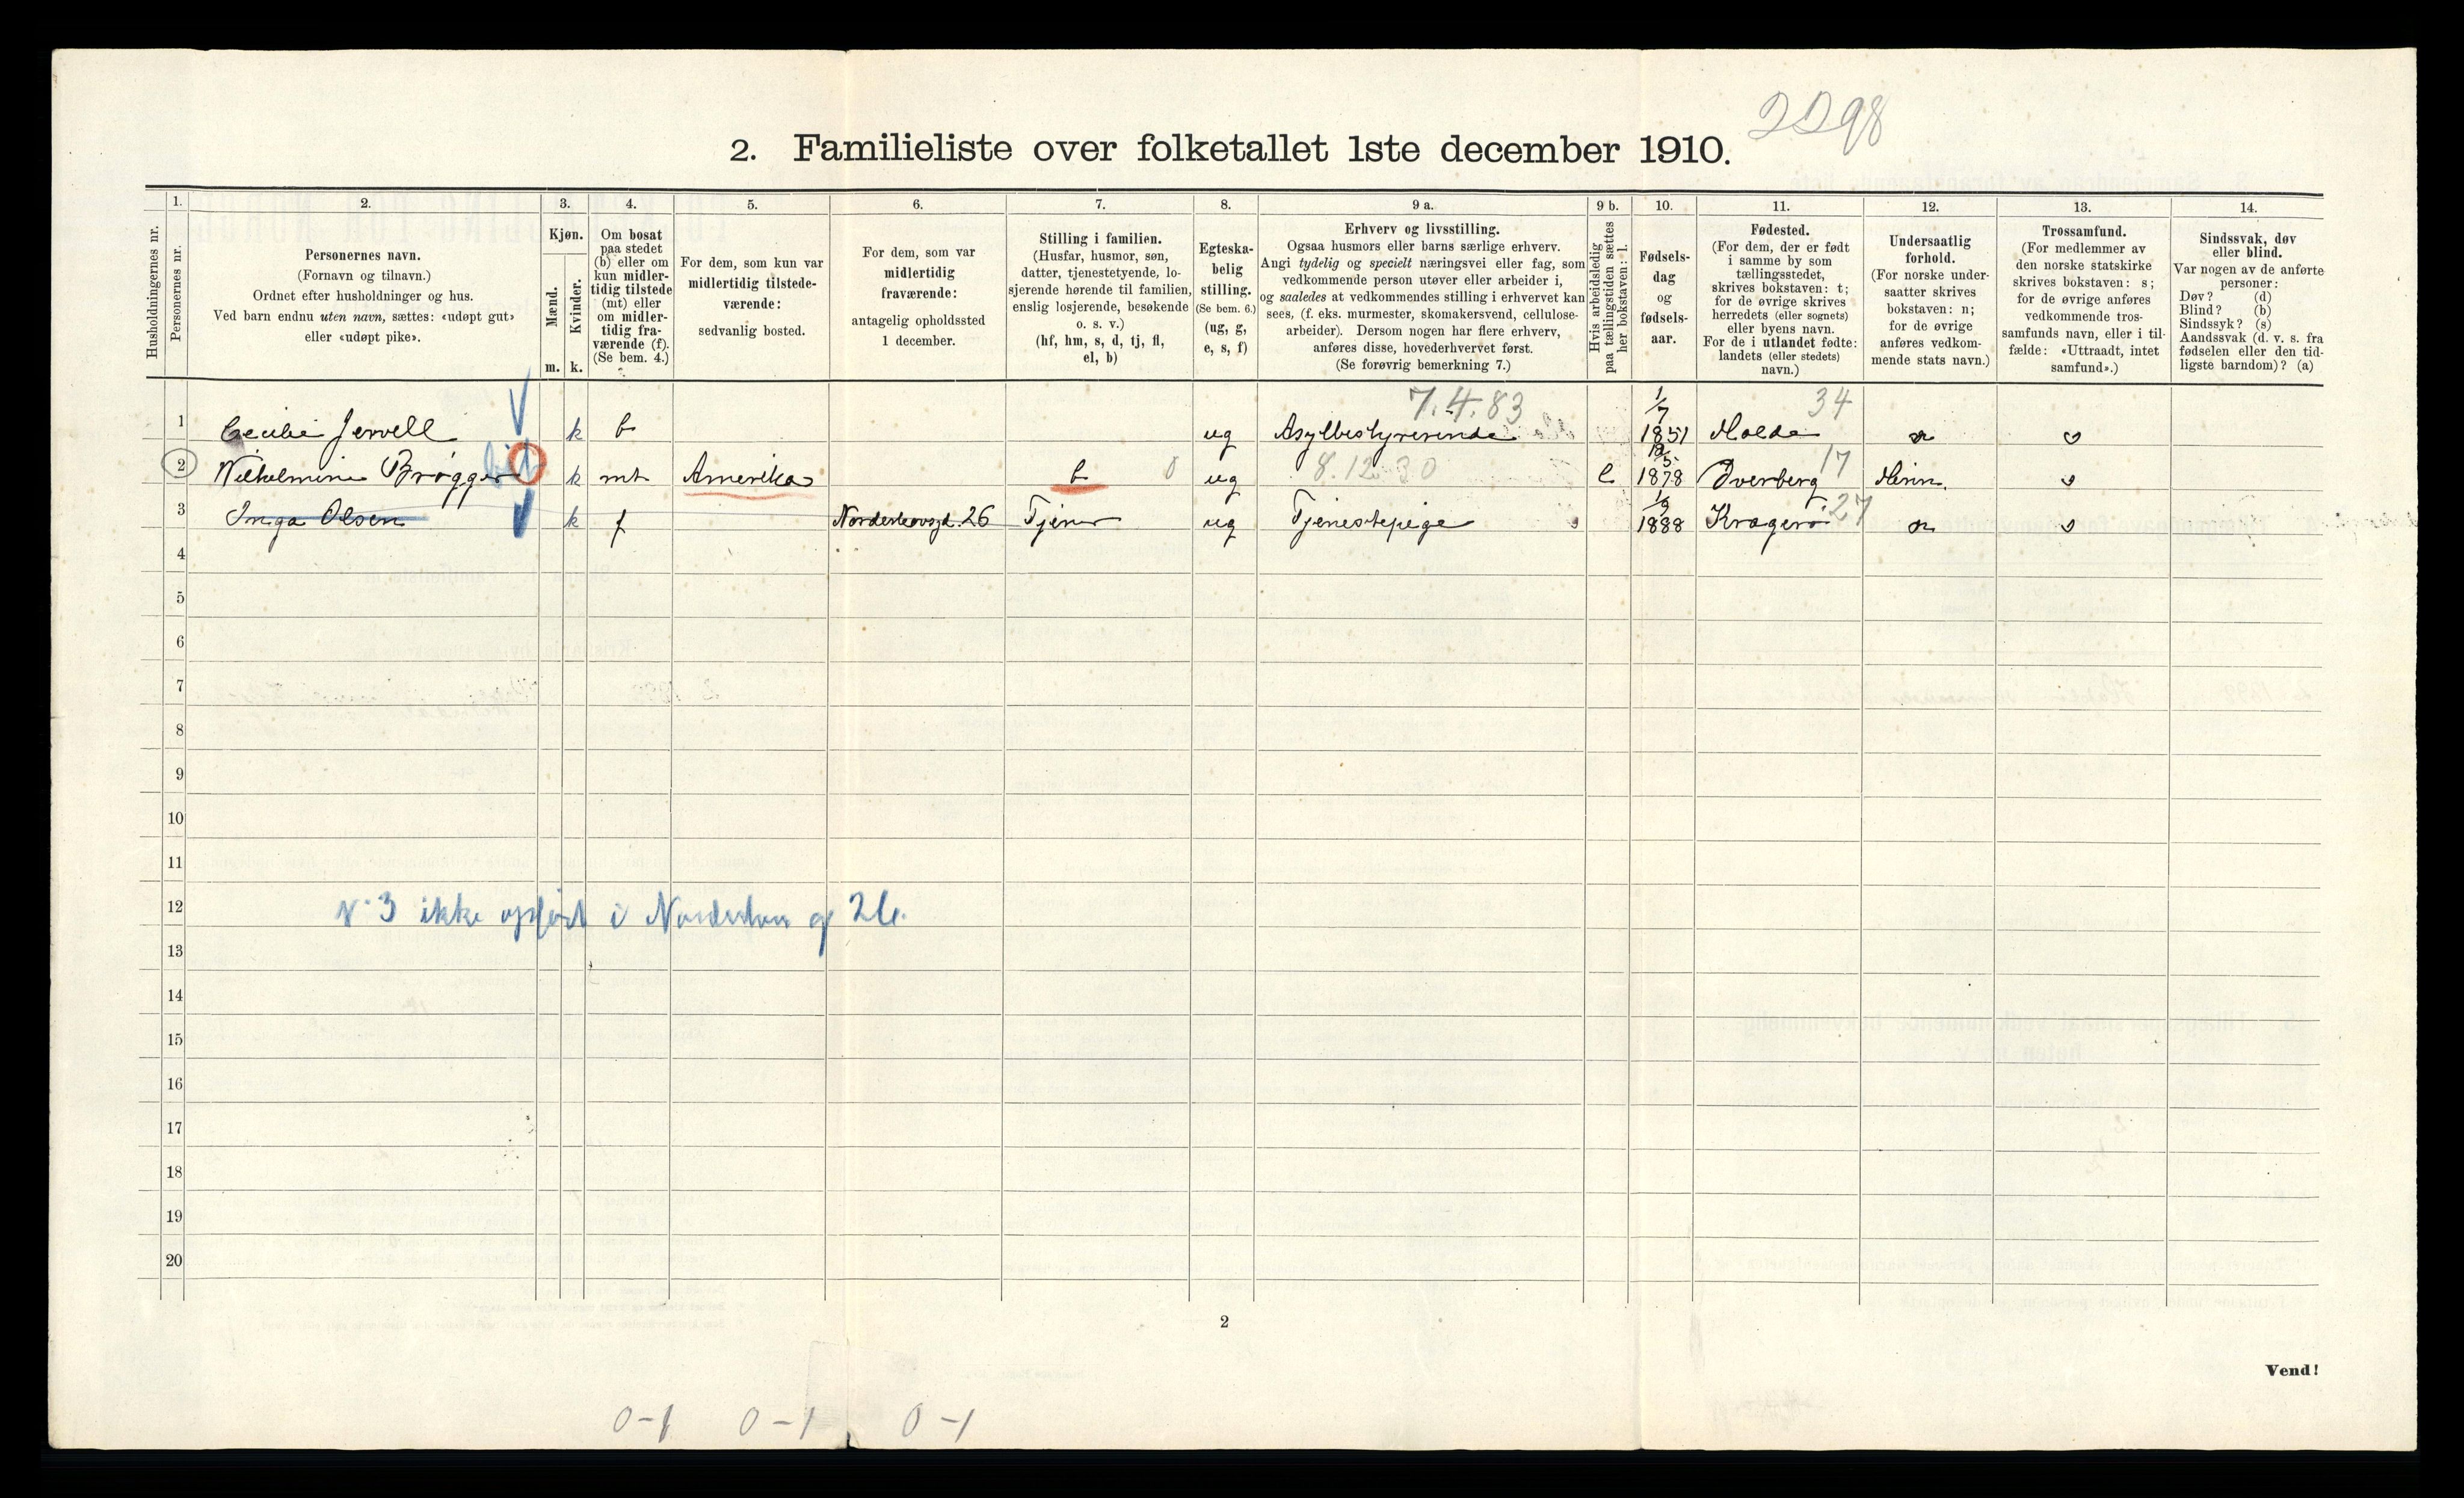 2298
2. Familieliste over folketallet 1ste december 1910.
1. 2. 3. 4. 5. 6. 7. 8. 9 a. 9 b. 10. 11. 12. 13. 14.
Husholdningernes nr.
Personernes nr.
Personernes navn.
(Fornavn og tilnavn.)
Ordnet efter husholdninger og hus.
Ved barn endnu uten navn, sættes: «udøpt gut»
eller «udøpt pike».
Kjøn.
Mænd.
Kvinder.
m. k.
Om bosat
paa stedet
(b) eller om
kun midler-
tidig tilstede
(mt) eller
om midler-
tidig fra-
værende (f).
(Se bem. 4.)
For dem, som kun var
midlertidig tilstede-
værende:
sedvanlig bosted.
For dem, som var
midlertidig
fraværende:
antagelig opholdssted
1 december.
Stilling i familien.
(Husfar, husmor, søn,
datter, tjenestetyende, lo-
sjerende hørende til familien,
enslig losjerende, besøkende
o. s. v.)
(hf, hm, s, d, tj, fl,
el, b)
Egteska-
belig
stilling.
(Se bem. 6.)
(ug, g,
e, s, f)
Erhverv og livsstilling.
Ogsaa husmors eller barns særlige erhverv.
Angi tydelig og specielt næringsvei eller fag, som
vedkommende person utøver eller arbeider i,
og saaledes at vedkommendes stilling i erhvervet kan
sees, (f. eks. murmester, skomakersvend, cellulose-
arbeider). Dersom nogen har flere erhverv,
anføres disse, hovederhvervet først.
(Se forøvrig bemerkning 7.)
Hvis arbeidsledig
paa tællingstiden sættes
her bokstaven: l.
Fødsels-
dag
og
fødsels-
aar.
Fødested.
(For dem, der er født
i samme by som
tællingsstedet,
skrives bokstaven: t;
for de øvrige skrives
herredets (eller sognets)
eller byens navn.
For de i utlandet fødte:
landets (eller stedets)
navn.)
Undersaatlig
forhold.
(For norske under-
saatter skrives
bokstaven: n;
for de øvrige
anføres vedkom-
mende stats navn.)
Trossamfund.
(For medlemmer av
den norske statskirke
skrives bokstaven: s;
for de øvrige anføres
vedkommende tros-
samfunds navn, eller i til-
fælde: «Uttraadt, intet
samfund».)
Sindssvak, døv
eller blind.
Var nogen av de anførte
personer:
Døv? (d)
Blind? (b)
Sindssyk? (s)
Aandssvak (d. v. s. fra
fødselen eller den tid-
ligste barndom)? (a)
7.4.83 1/7 34
1 Cecilie Jervell k b ug Asylbestyrerinde 1851 Molde n s
8.12.30 17
2 Wilhelmine Brøgger k mt Amerika b 0 ug l 1878 Overberg s
1/9 27
3 Inga Olsen k f 26 Tjener ug Tjenestepige 1888 Kragerø n s
4
5
6
7
8
9
10
11
12 No 3 ikke opført i 26.
13
14
15
16
17
18
19
20
2
Vend!
0-1 0-1 0-1